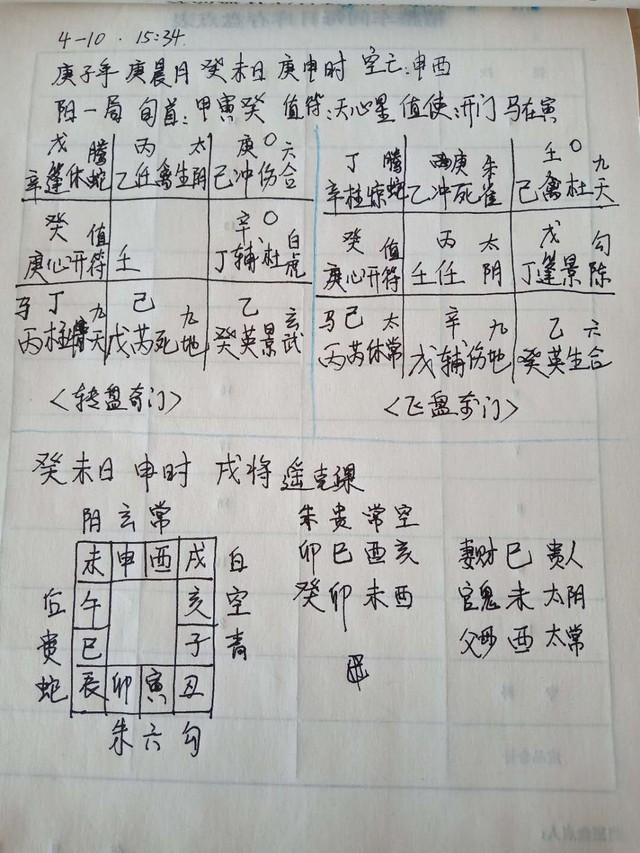 4-10 · 15:34
庚子年 庚晨月 癸未日 庚申时 空亡:申酉
阳一局 旬首:甲寅癸 值符:天心星 值使:开门 马在寅
戊 腾 丙 太 庚○六
辛蓬休蛇 乙任禽生阴 己冲伤合
癸 值 辛○白
庚心开符 壬 丁辅杜虎
马丁 九 己 九 乙 玄
丙柱天 戊芮死地 癸英景武
<转盘奇门>
丁 腾 庚 朱 壬○九
辛柱惊蛇 乙冲死雀 己禽杜天
癸 值 丙 太 戊 勾
庚心开符 壬任 阴 丁蓬景陈
马己 太 辛 九 乙 六
丙芮休常 戊辅伤地 癸英生合
<飞盘奇门>
癸未日 申时 戌将 遥克课
阴玄常
未申酉戌 白
后 午 亥 空
贵 巳 子 青
蛇 辰卯寅丑
朱六勾
朱贵常空
卯巳酉亥
癸卯未酉
妻财 巳 贵人
官鬼 未 太阴
父母 酉 太常